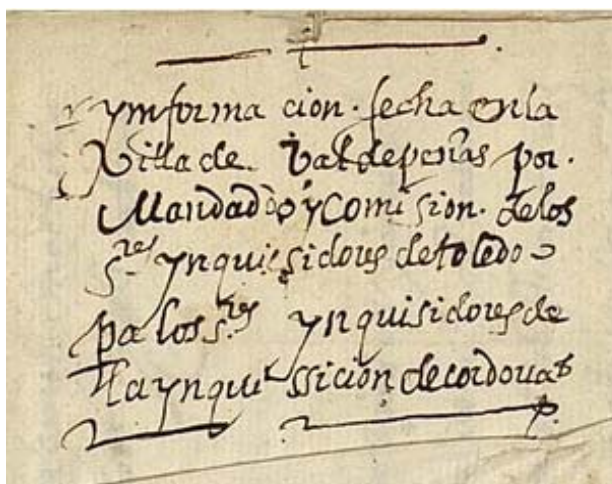 ynforma cion. fecha en la
Villa de Valdepeñas por.
Mandado y Comision. de los
s.res ynquisidores de toledo
pa los s.res ynquisidores de
la ynqui ssicion de cordoua